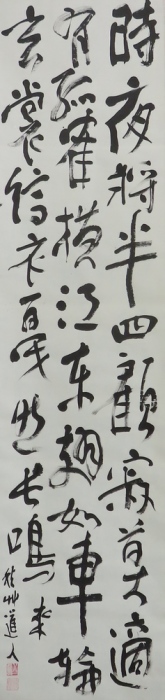 時夜将半四顧寂寥適
有孤雀横江東翅如車輪
玄裳縞衣戛然長鳴
艸道人